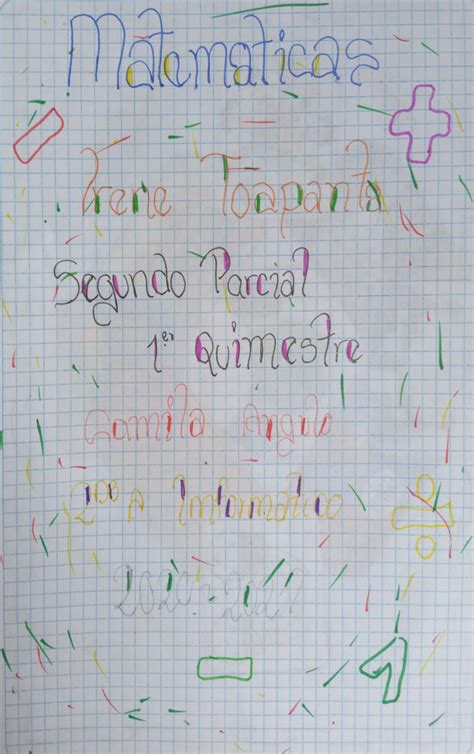 Matematicas
Irene Toapanta
Segundo Parcial
1er Quimestre
Camila Angulo
2do a Informatico
2020-2021